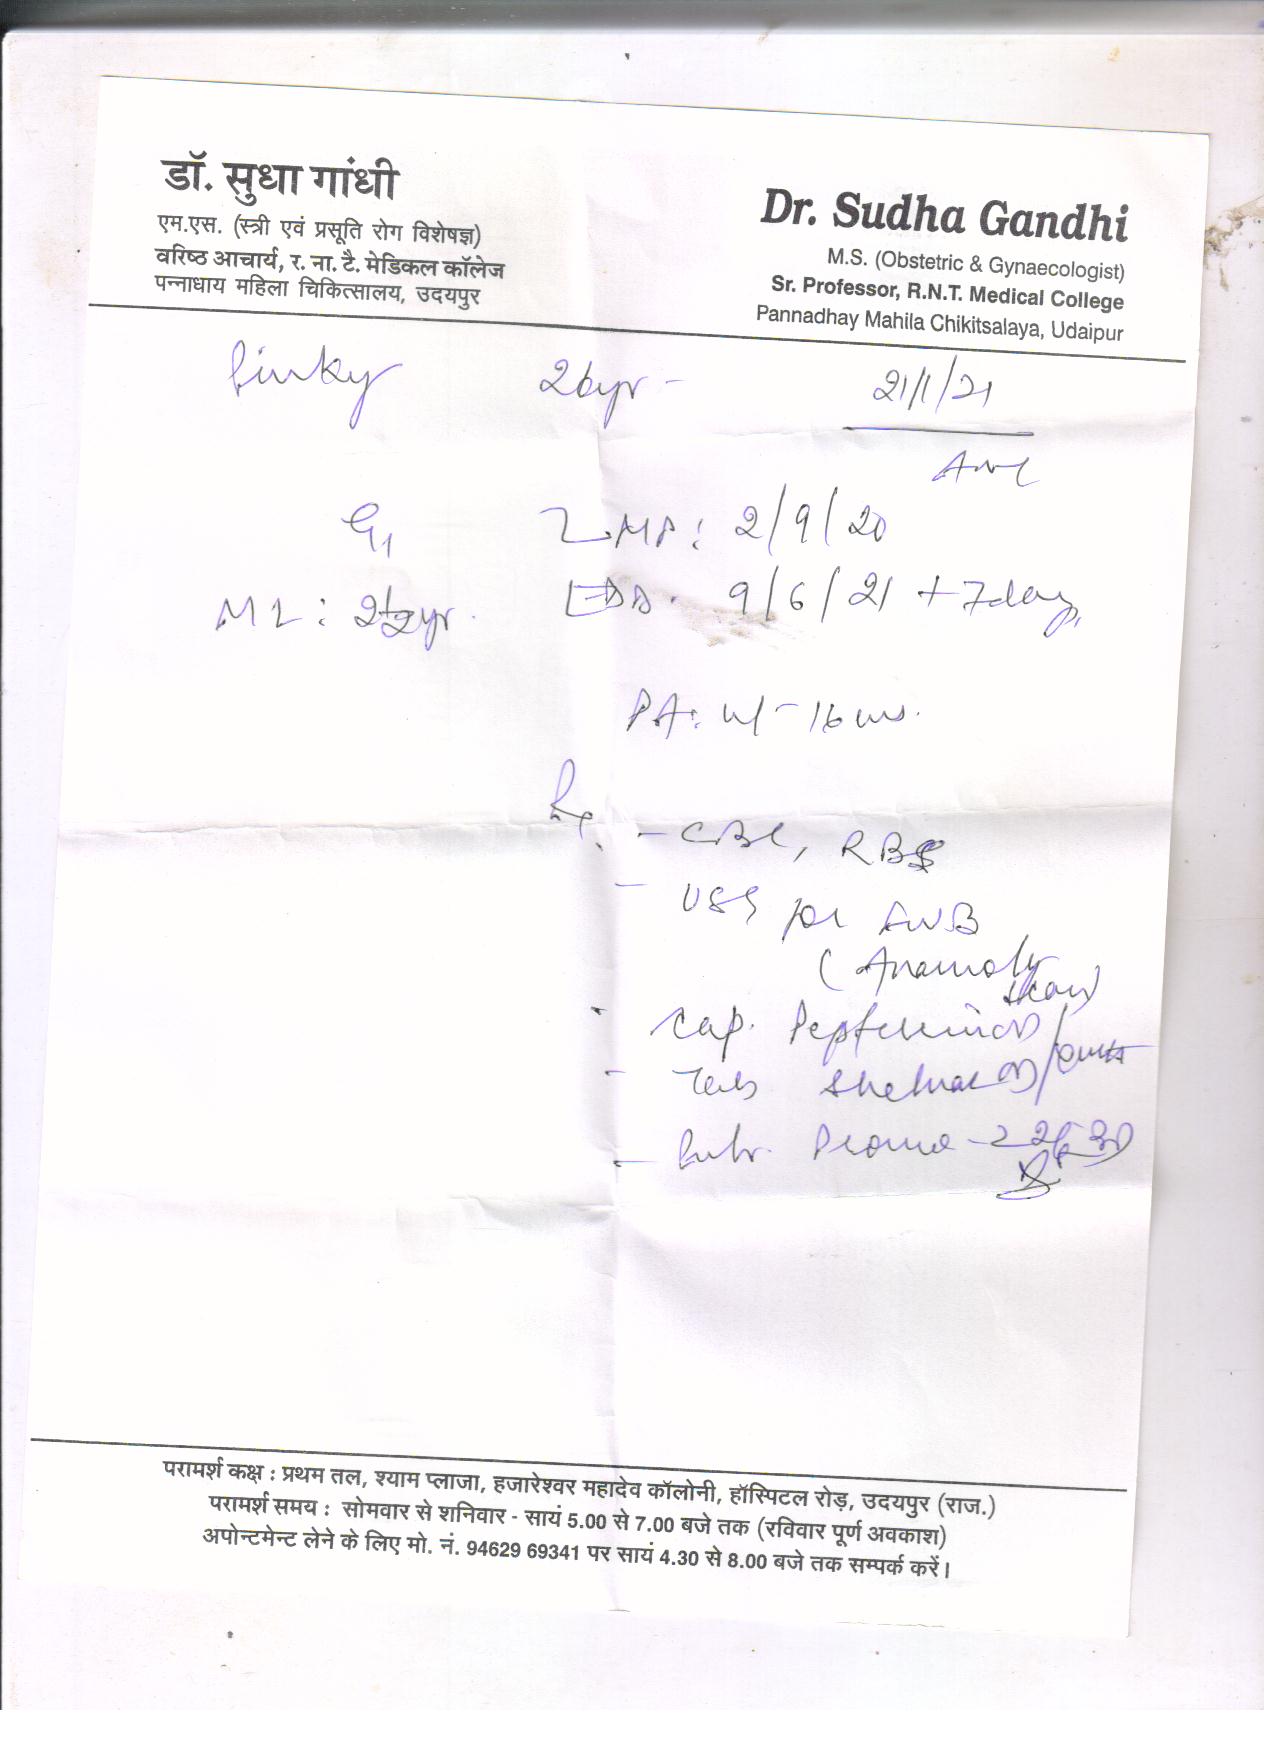 डॉ. सुधा गांधी
एम.एस. (स्त्री एवं प्रसूति रोग विशेषज्ञ)
वरिष्ठ आचार्य, र. ना. टै. मेडिकल कॉलेज
पन्नाधाय महिला चिकित्सालय, उदयपुर
Dr. Sudha Gandhi
M.S. (Obstetric & Gynaecologist)
Sr. Professor, R.N.T. Medical College
Pannadhay Mahila Chikitsalaya, Udaipur
Pinky 26yr - 21/1/21
ANC
G1 LMP: 2/9/20
ML: 2½yr. EDD. 9/6/21 + 7day
PA: ut - 16 wks.
Rx. - CBC, RBS
- USG for FWB
(Anamoly
scan)
- Cap.
- Tab
-
परामर्श कक्ष : प्रथम तल, श्याम प्लाजा, हजारेश्वर महादेव कॉलोनी, हॉस्पिटल रोड़, उदयपुर (राज.)
परामर्श समय : सोमवार से शनिवार - सायं 5.00 से 7.00 बजे तक (रविवार पूर्ण अवकाश)
अपोन्टमेन्ट लेने के लिए मो. नं. 94629 69341 पर सायं 4.30 से 8.00 बजे तक सम्पर्क करें।